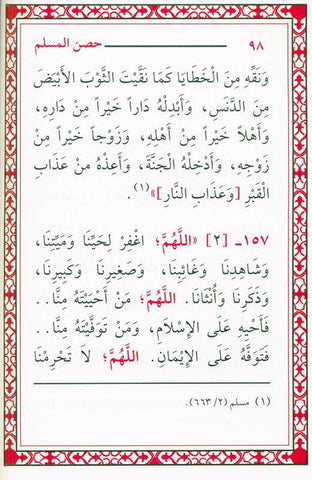 ٩٨ حصن المسلم
وَنَقِّهِ مِنَ الْخَطَايَا كَمَا نَقَّيْتَ الثَّوْبَ الأَبْيَضَ
مِنَ الدَّنَسِ، وَأَبْدِلْهُ دَاراً خَيْراً مِنْ دَارِهِ،
وَأَهْلاً خَيْراً مِنْ أَهْلِهِ، وَزَوْجاً خَيْراً مِنْ
زَوْجِهِ، وَأَدْخِلْهُ الْجَنَّةَ، وَأَعِذْهُ مِنْ عَذَابِ
الْقَبْرِ [وَعَذَابَ النَّارِ]»(١).
١٥٧ـ [٢] «اللَّهُمَّ؛ اغْفِرْ لِحَيِّنَا وَمَيِّتِنَا،
وَشَاهِدِنَا وَغَائِبِنَا، وَصَغِيرِنَا وَكَبِيرِنَا،
وَذَكَرِنَا وَأُنْثَانَا. اللَّهُمَّ؛ مَنْ أَحْيَيْتَهُ مِنَّا..
فَأَحْيِهِ عَلَى الإِسْلاَمِ، وَمَنْ تَوَفَّيْتَهُ مِنَّا..
فَتَوَفَّهُ عَلَى الإِيْمَانِ. اللَّهُمَّ؛ لاَ تَحْرِمْنَا
(١) مسلم (٢/ ٦٦٣).